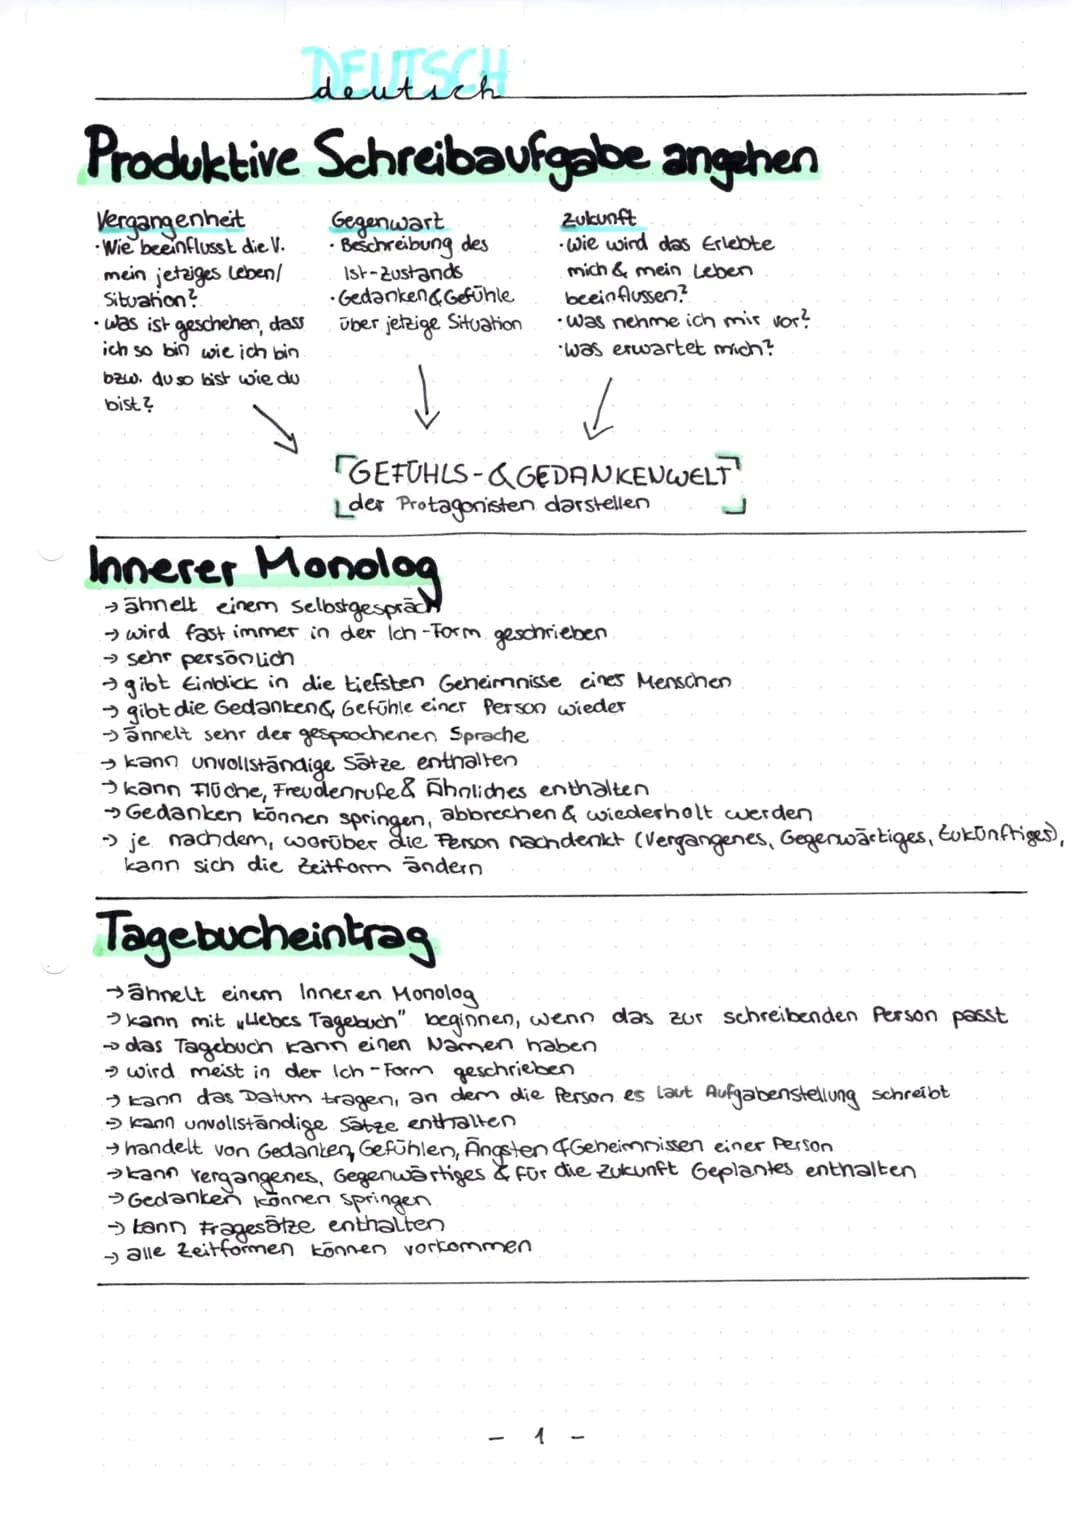 DEUTSCH
deutsch
Produktive Schreibaufgabe angehen
Vergangenheit
· Wie beeinflusst die V.
mein jetziges Leben/
Situation?
· Was ist geschehen, dass
ich so bin wie ich bin
bzw. du so bist wie du
bist?
Gegenwart
· Beschreibung des
Ist-Zustands
· Gedanken & Gefühle
über jetzige Situation
Zukunft
· Wie wird das Erlebte
mich & mein Leben
beeinflussen?
· Was nehme ich mir vor?
· Was erwartet mich?
GEFÜHLS- & GEDANKENWELT
der Protagonisten darstellen
Innerer Monolog
→ ähnelt einem Selbstgespräch
→ wird fast immer in der Ich-Form geschrieben
→ sehr persönlich
→ gibt Einblick in die tiefsten Geheimnisse eines Menschen
→ gibt die Gedanken & Gefühle einer Person wieder
→ ähnelt sehr der gesprochenen Sprache
→ kann unvollständige Sätze enthalten
→ kann Flüche, Freudenrufe & Ähnliches enthalten
→ Gedanken können springen, abbrechen & wiederholt werden
→ je nachdem, worüber die Person nachdenkt (Vergangenes, Gegenwärtiges, Zukünftiges),
kann sich die Zeitform ändern
Tagebucheintrag
→ ähnelt einem Inneren Monolog
→ kann mit „Liebes Tagebuch" beginnen, wenn das zur schreibenden Person passt
→ das Tagebuch kann einen Namen haben
→ wird meist in der Ich-Form geschrieben
→ kann das Datum tragen, an dem die Person es laut Aufgabenstellung schreibt
→ kann unvollständige Sätze enthalten
→ handelt von Gedanken, Gefühlen, Ängsten & Geheimnissen einer Person
→ kann Vergangenes, Gegenwärtiges & für die Zukunft Geplantes enthalten
→ Gedanken können springen
→ kann Fragesätze enthalten
→ alle Zeitformen können vorkommen
- 1 -